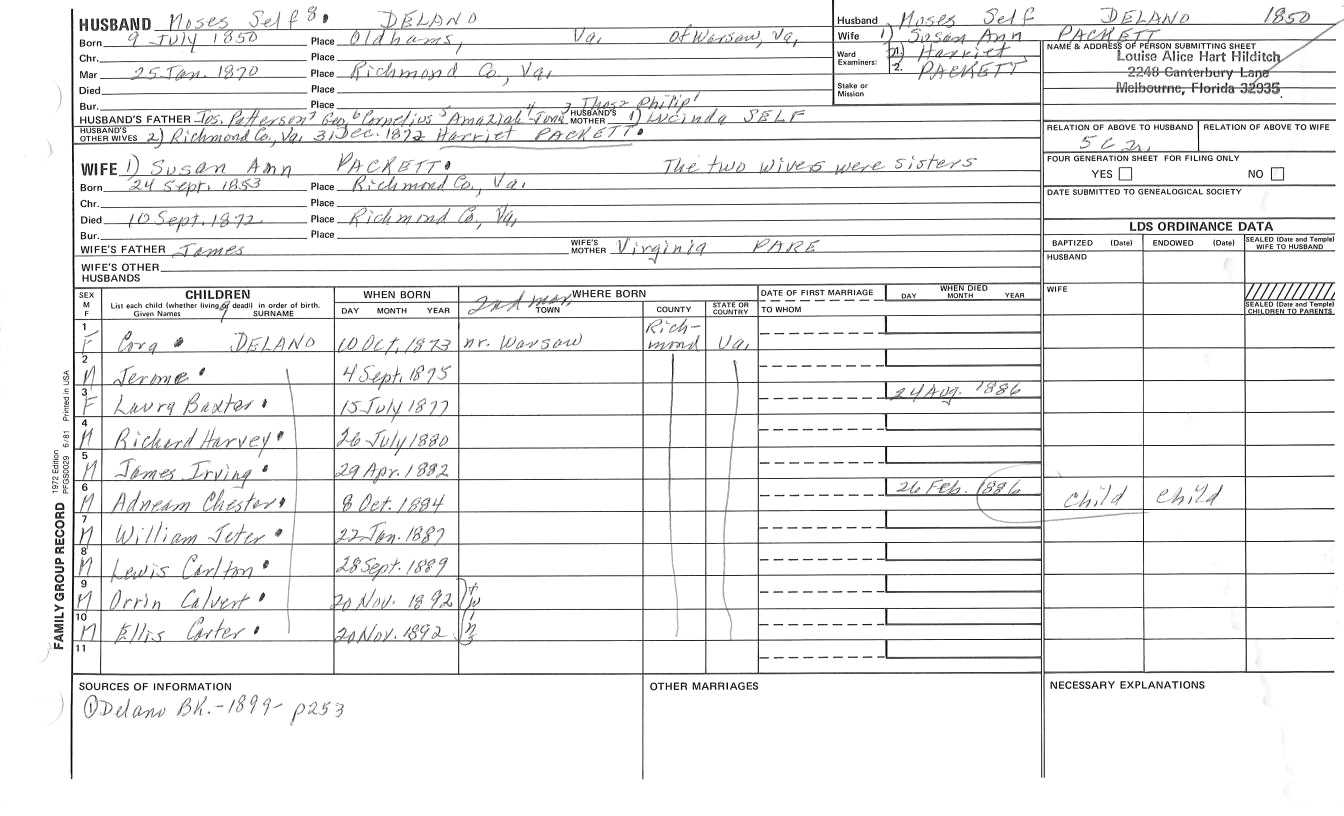 HUSBAND Moses Self 8. DELANO
Born 9 July 1850 Place Oldhams, Va. of Warsaw, Va,
Chr. Place
Mar 25 Jan. 1870 Place Richmond Co, Va,
Died Place
Bur. Place
HUSBAND'S FATHER Jos. Patterson 7 Geo, 6 Cornelius 5 Amaziah 4 3 Thos 2 Philip 1 HUSBAND'S MOTHER 1) Lucinda SELF
HUSBAND'S OTHER WIVES 2) Richmond Co, Va, 31 Dec. 1872 Harriet PACKETT.
WIFE 1) Susan Ann PACKETT. The two wives were sisters
Born 24 Sept. 1853 Place Richmond Co, Va.
Chr. Place
Died 10 Sept. 1872 Place Richmond Co, Va,
Bur. Place
WIFE'S FATHER James WIFE'S MOTHER Virginia PARE
WIFE'S OTHER HUSBANDS
Husband Moses Self DELANO 1850
Wife 1) Susan Ann PACKETT
Ward Examiners: 1. 2. Harriet PACKETT
Stake or Mission
NAME & ADDRESS OF PERSON SUBMITTING SHEET
Louise Alice Hart Hilditch
2248 Canterbury Lane
Melbourne, Florida 32935
RELATION OF ABOVE TO HUSBAND RELATION OF ABOVE TO WIFE
5 C 2r,
FOUR GENERATION SHEET FOR FILING ONLY
YES NO
DATE SUBMITTED TO GENEALOGICAL SOCIETY
LDS ORDINANCE DATA
BAPTIZED (Date) ENDOWED (Date) SEALED (Date and Temple) WIFE TO HUSBAND
HUSBAND
WIFE
SEALED (Date and Temple) CHILDREN TO PARENTS
SEX M F CHILDREN WHEN BORN 2nd mar, WHERE BORN DATE OF FIRST MARRIAGE WHEN DIED
List each child (whether living or dead) in order of birth.
Given Names SURNAME DAY MONTH YEAR TOWN COUNTY STATE OR COUNTRY TO WHOM DAY MONTH YEAR
1 F Cora DELANO 10 Oct, 1873 nr. Warsaw Rich-mond Va,
2 M Jerome 4 Sept. 1875
3 F Laura Baxter 15 July 1877 24 Aug. 1886
4 M Richard Harvey 26 July 1880
5 M James Irving 29 Apr. 1882
6 M Adneam Chester 8 Oct. 1884 26 Feb. 1886 child child
7 M William Jeter 22 Jan. 1887
8 M Lewis Carlton 28 Sept. 1889
9 M Orrin Calvert 20 Nov. 1892 twins
10 M Ellis Carter 20 Nov. 1892
11
SOURCES OF INFORMATION OTHER MARRIAGES NECESSARY EXPLANATIONS
① Delano BK.-1899- p253
FAMILY GROUP RECORD 1972 Edition PFGS0029 6/81 Printed in USA